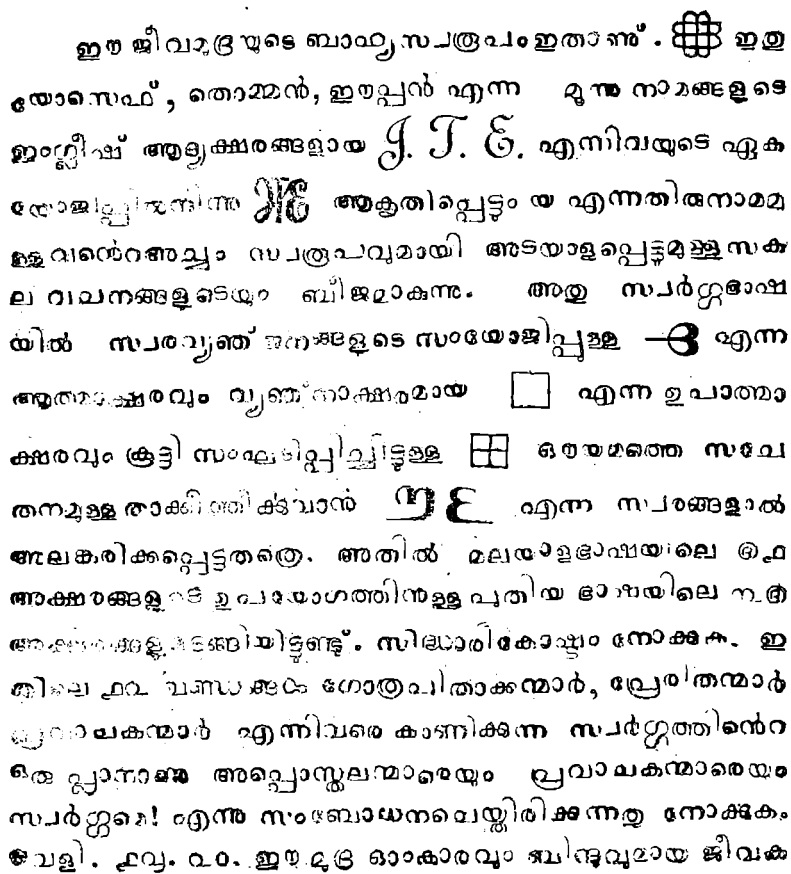 ഈ ജീവമുദ്രയുടെ ബാഹ്യസ്വരൂപം ഇതാണു്. ഇതു
യോസെഫ്, തൊമ്മൻ, ഈപ്പൻ എന്ന മൂന്നു നാമങ്ങളുടെ
ഇംഗ്ലീഷ് ആദ്യക്ഷരങ്ങളായ J. T. E. എന്നിവയുടെ ഏക
യോജിപ്പിൽനിന്നു ആകൃതിപ്പെട്ടും യ എന്നതിരുനാമമു
ള്ളവൻെറഅച്ചാം സ്വരൂപവുമായി അടയാളപ്പെട്ടുമുള്ളസകു
ല വചനങ്ങളുടെയും ബീജമാകുന്നു. അതു സ്വർഗ്ഗഭാഷ
യിൽ സ്വരവ്യഞ്ജനങ്ങളുടെ സംയോജിപ്പുള്ള എന്ന
ആത്മാക്ഷരവും വ്യഞ്ജനാക്ഷരമായ എന്ന ഉപാത്മാ
ക്ഷരവും കൂട്ടി സംഘടിപ്പിച്ചിട്ടുള്ള ഔയമത്തെ സചേ
തനമുള്ള എന്ന സ്വരങ്ങളാൽ
അലങ്കരിക്കപ്പെട്ടതത്രെ. അതിൽ മലയാളഭാഷയിലെ
അക്ഷരങ്ങളുടെ ഉപയോഗത്തിനുള്ള പുതിയ ഭാഷയിലെ
അക്ഷരങ്ങളുമടങ്ങിയിട്ടുണ്ടു്. സിദ്ധാരികോഷ്ടം നോക്കുക. ഇ
തിലെ ൧൨ ഖണ്ഡങ്ങൾ ഗോത്രപിതാക്കന്മാർ, പ്രേരിതന്മാർ
പ്രവാചകന്മാർ എന്നിവരെ കാണിക്കുന്ന സ്വർഗ്ഗത്തിൻെറ
ഒരു പ്ലാനാണു അപ്പൊസ്തലന്മാരെയും പ്രവാചകന്മാരെയും
സ്വർഗ്ഗമെ! എന്നു സംബോധനചെയ്തിരിക്കുന്നതു നോക്കുകം
വെളി. ൧൮. ൨൦. ഈ മുദ്ര ഓംകാരവും ബിന്ദുവുമായ ജീവക